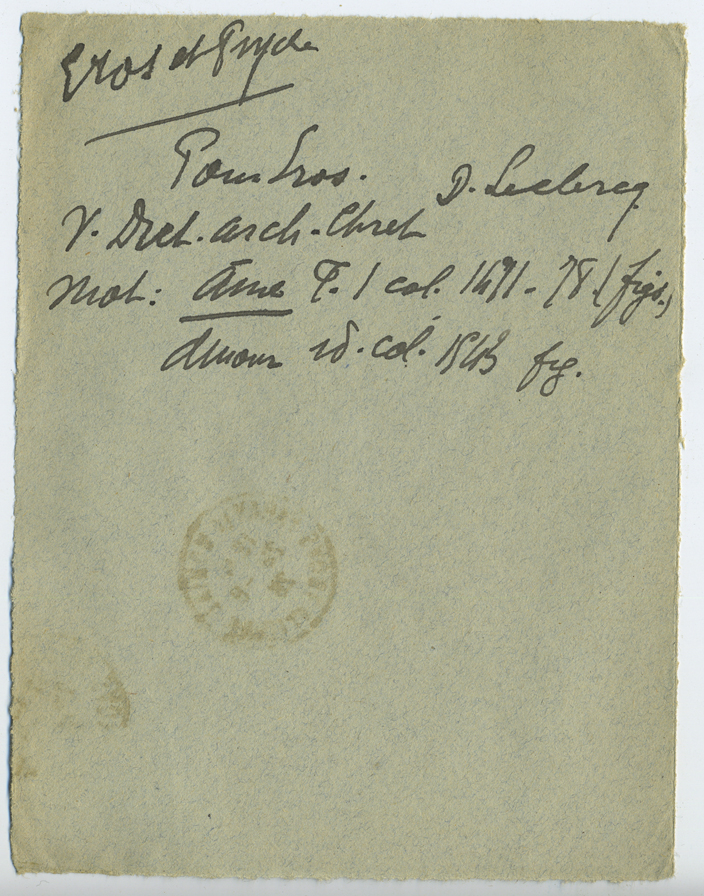 Eros et Psyche
Pour Eros. D. Leclercq
V. Dict. arch. Chret
Mot: âme T. 1 col. 1471-78 (figs.)
Amour id. col. 1543 fig.